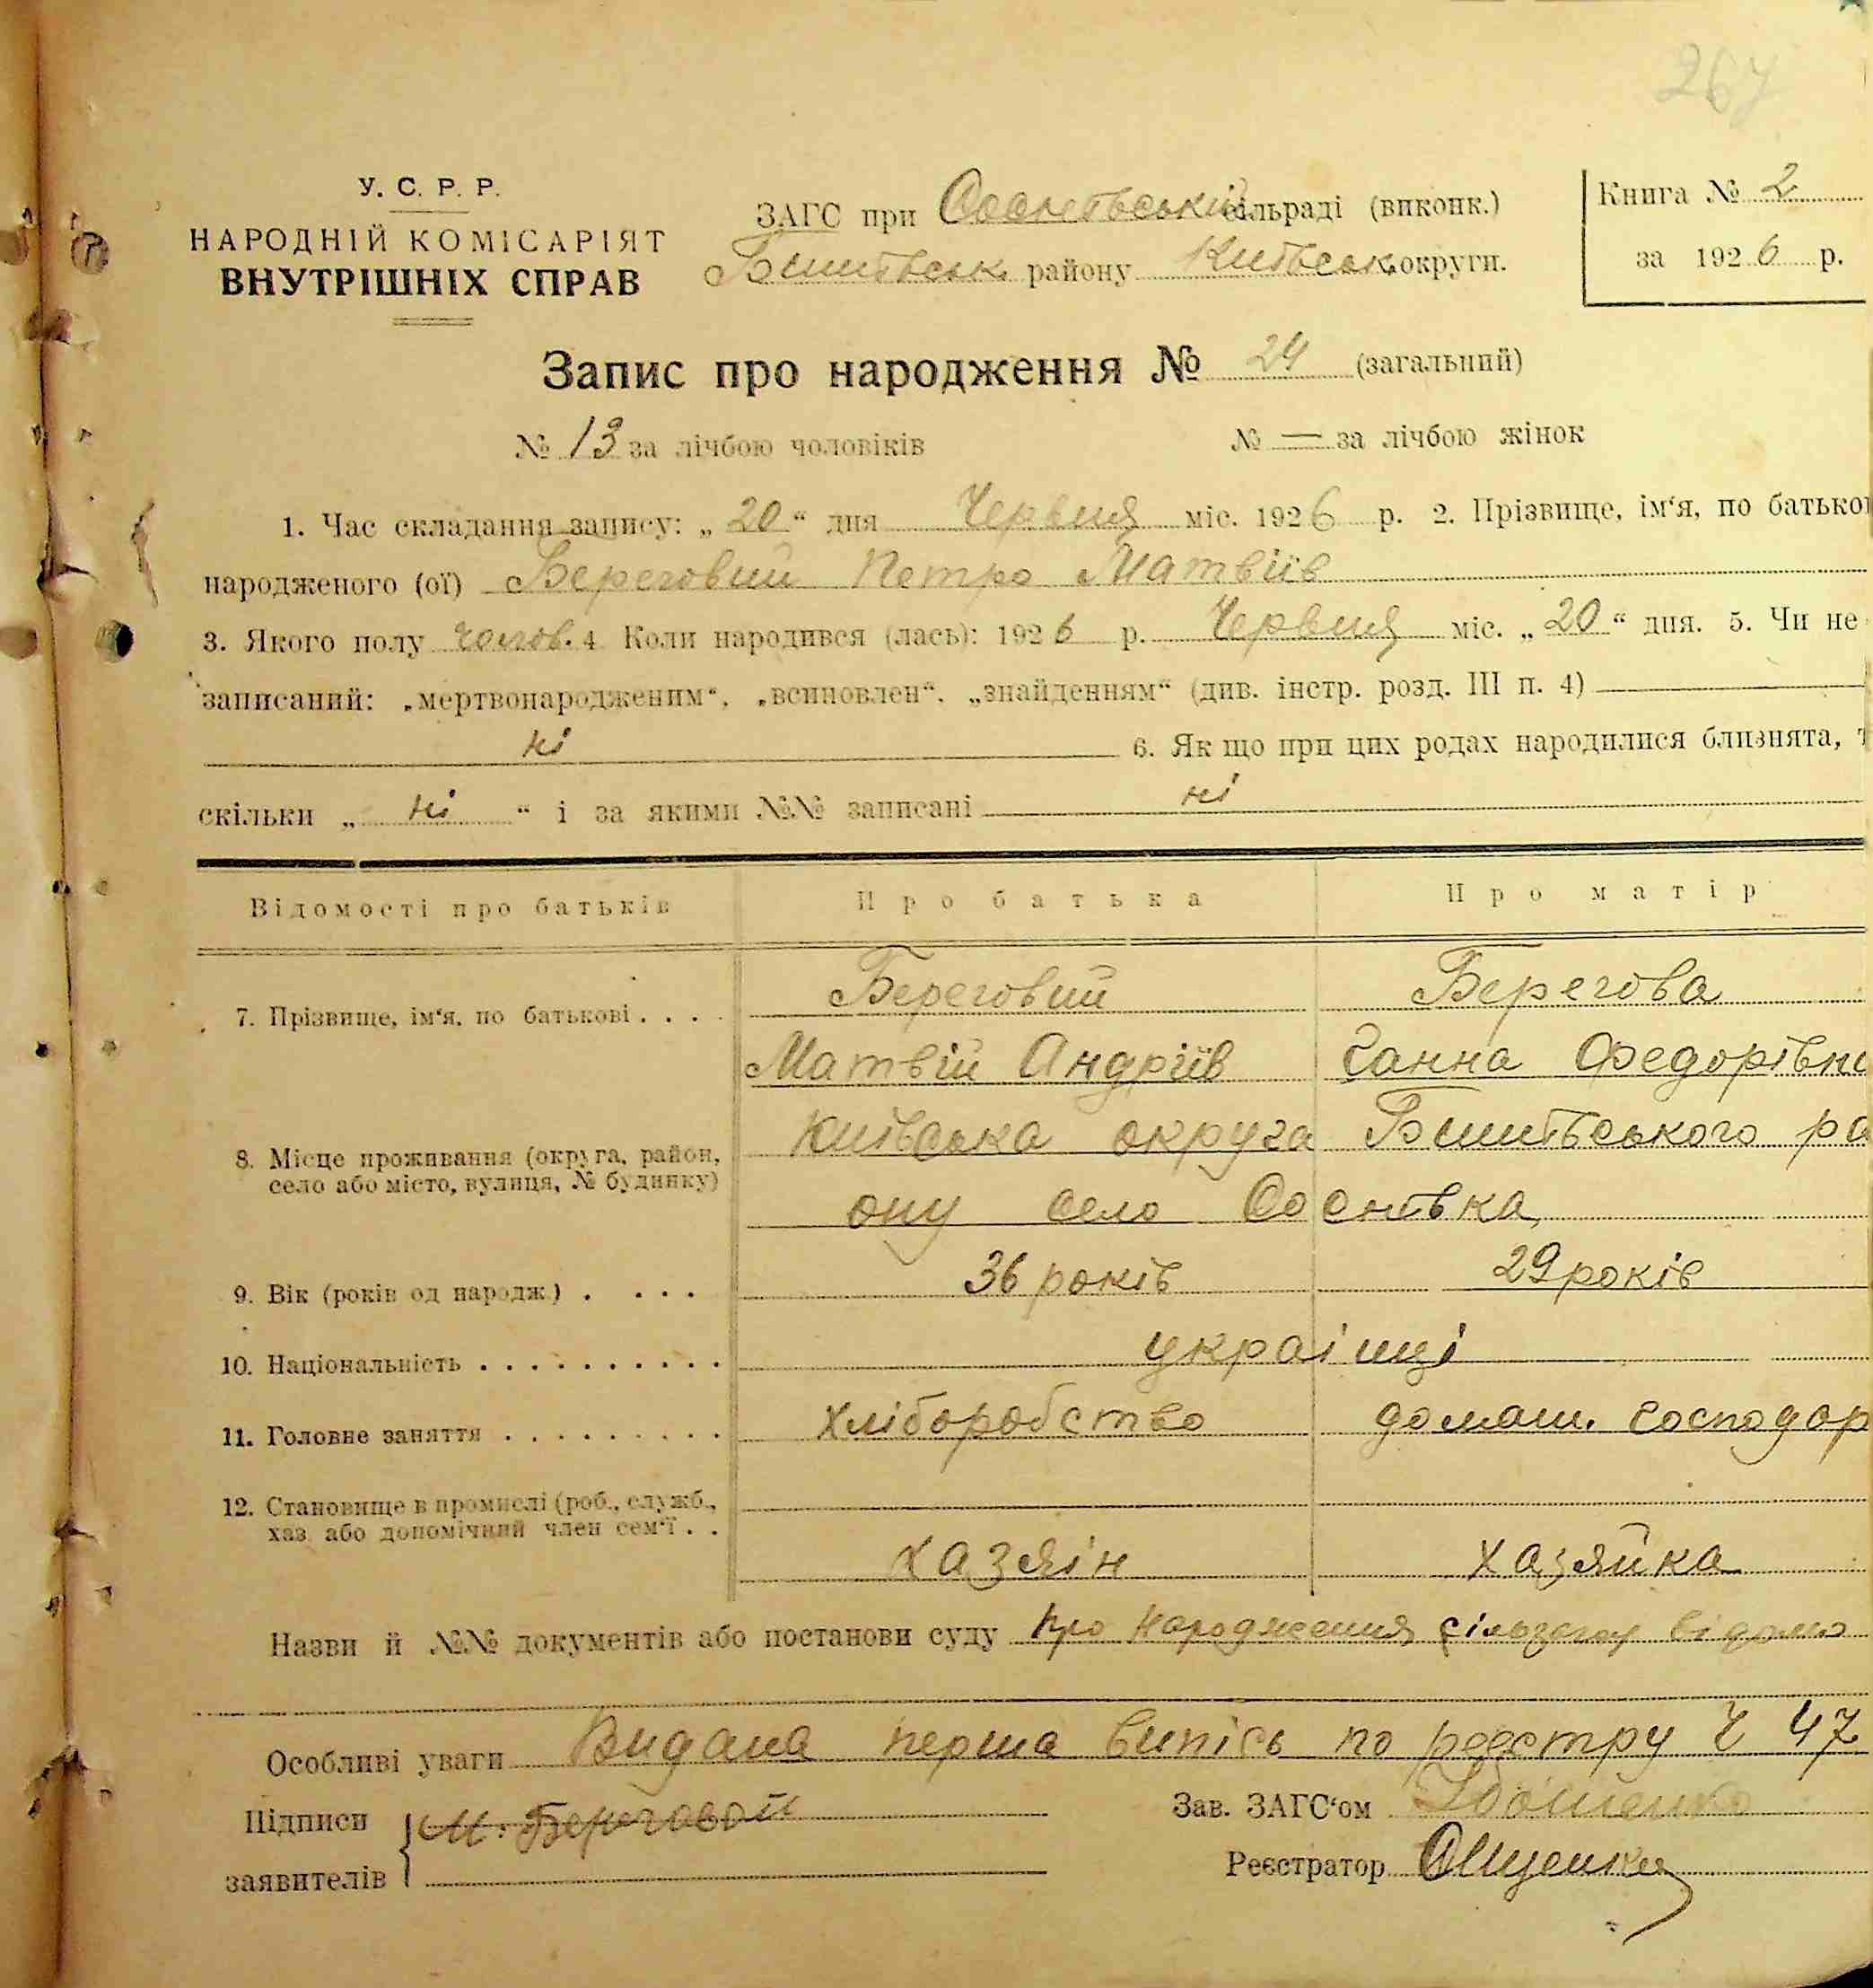 267
У. С. Р. Р.
НАРОДНІЙ КОМІСАРІЯТ
ВНУТРІШНІХ СПРАВ
ЗАГС при Соснівській сільраді (виконк.)
Бишівськ. району Київськ. округи.
Книга № 2
за 1926 р.
Запис про народження № 24 (загальний)
№ 13 за лічбою чоловіків № — за лічбою жінок
1. Час складання запису: „20“ дня Червня міс. 1926 р. 2. Прізвище, ім‘я, по батькові
народженого (ої) Береговий Петро Матвіїв
3. Якого полу чолов. 4 Коли народився (лась): 1926 р. Червня міс. „20“ дня. 5. Чи не
записаний: „мертвонародженим“, „всиновлен“, „знайденням“ (див. інстр. розд. III п. 4)
ні 6. Як що при цих родах народилися близнята, т
скільки „ ні “ і за якими №№ записані ні
Відомості про батьків Про батька Про матір
7. Прізвище, ім‘я, по батькові . . . . Береговий Берегова
Матвій Андріїв Ганна Федорівн
8. Місце проживання (округа, район, село або місто, вулиця, № будинку) Київська округа Бишівського ра
ону село Соснівка
9. Вік (років од народж.) . . . . 36 років 29 років
10. Національність . . . . . . . . . . українці
11. Головне заняття . . . . . . . . . хліборобство домаш. господар
12. Становище в промислі (роб., служб.,
хаз. або допомічний член сем‘ї . .
хазяін хазяйка
Назви й №№ документів або постанови суду про народження сільзагсу відомо
Особливі уваги Видана перша випісь по реєстру Ч 47
Підписи М. Береговой Зав. ЗАГС‘ом
заявителів Реєстратор